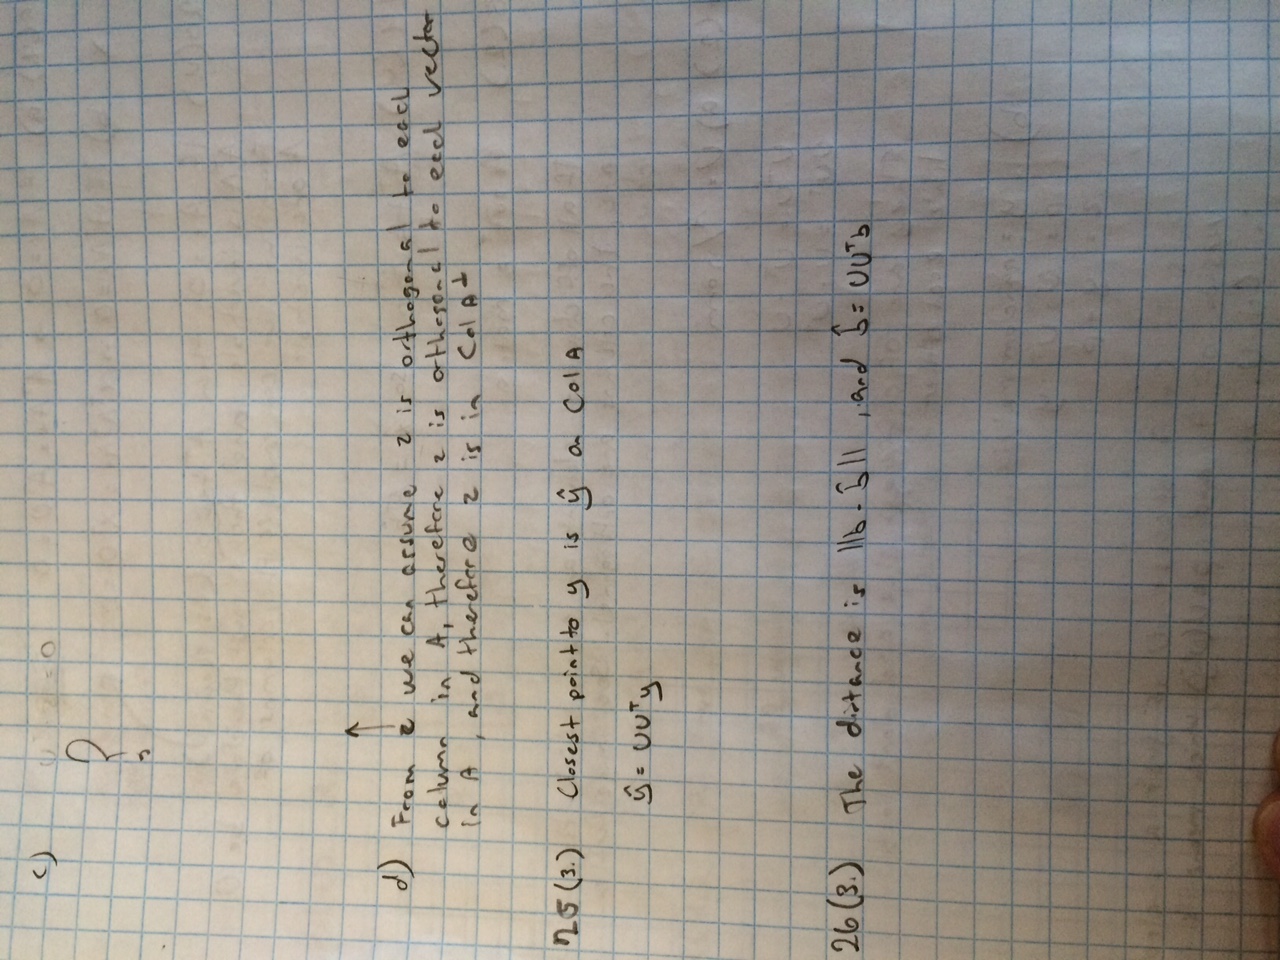 c)
?
d) From c we can assume z is orthogonal to each
column in A, therefore z is orthogonal to each vector
in A, and therefore z is in Col A⊥
25(3.) Closest point to y is ŷ on Col A
ŷ = UUᵀy
26(3.) The distance is ||b - b̂||, and b̂ = UUᵀb